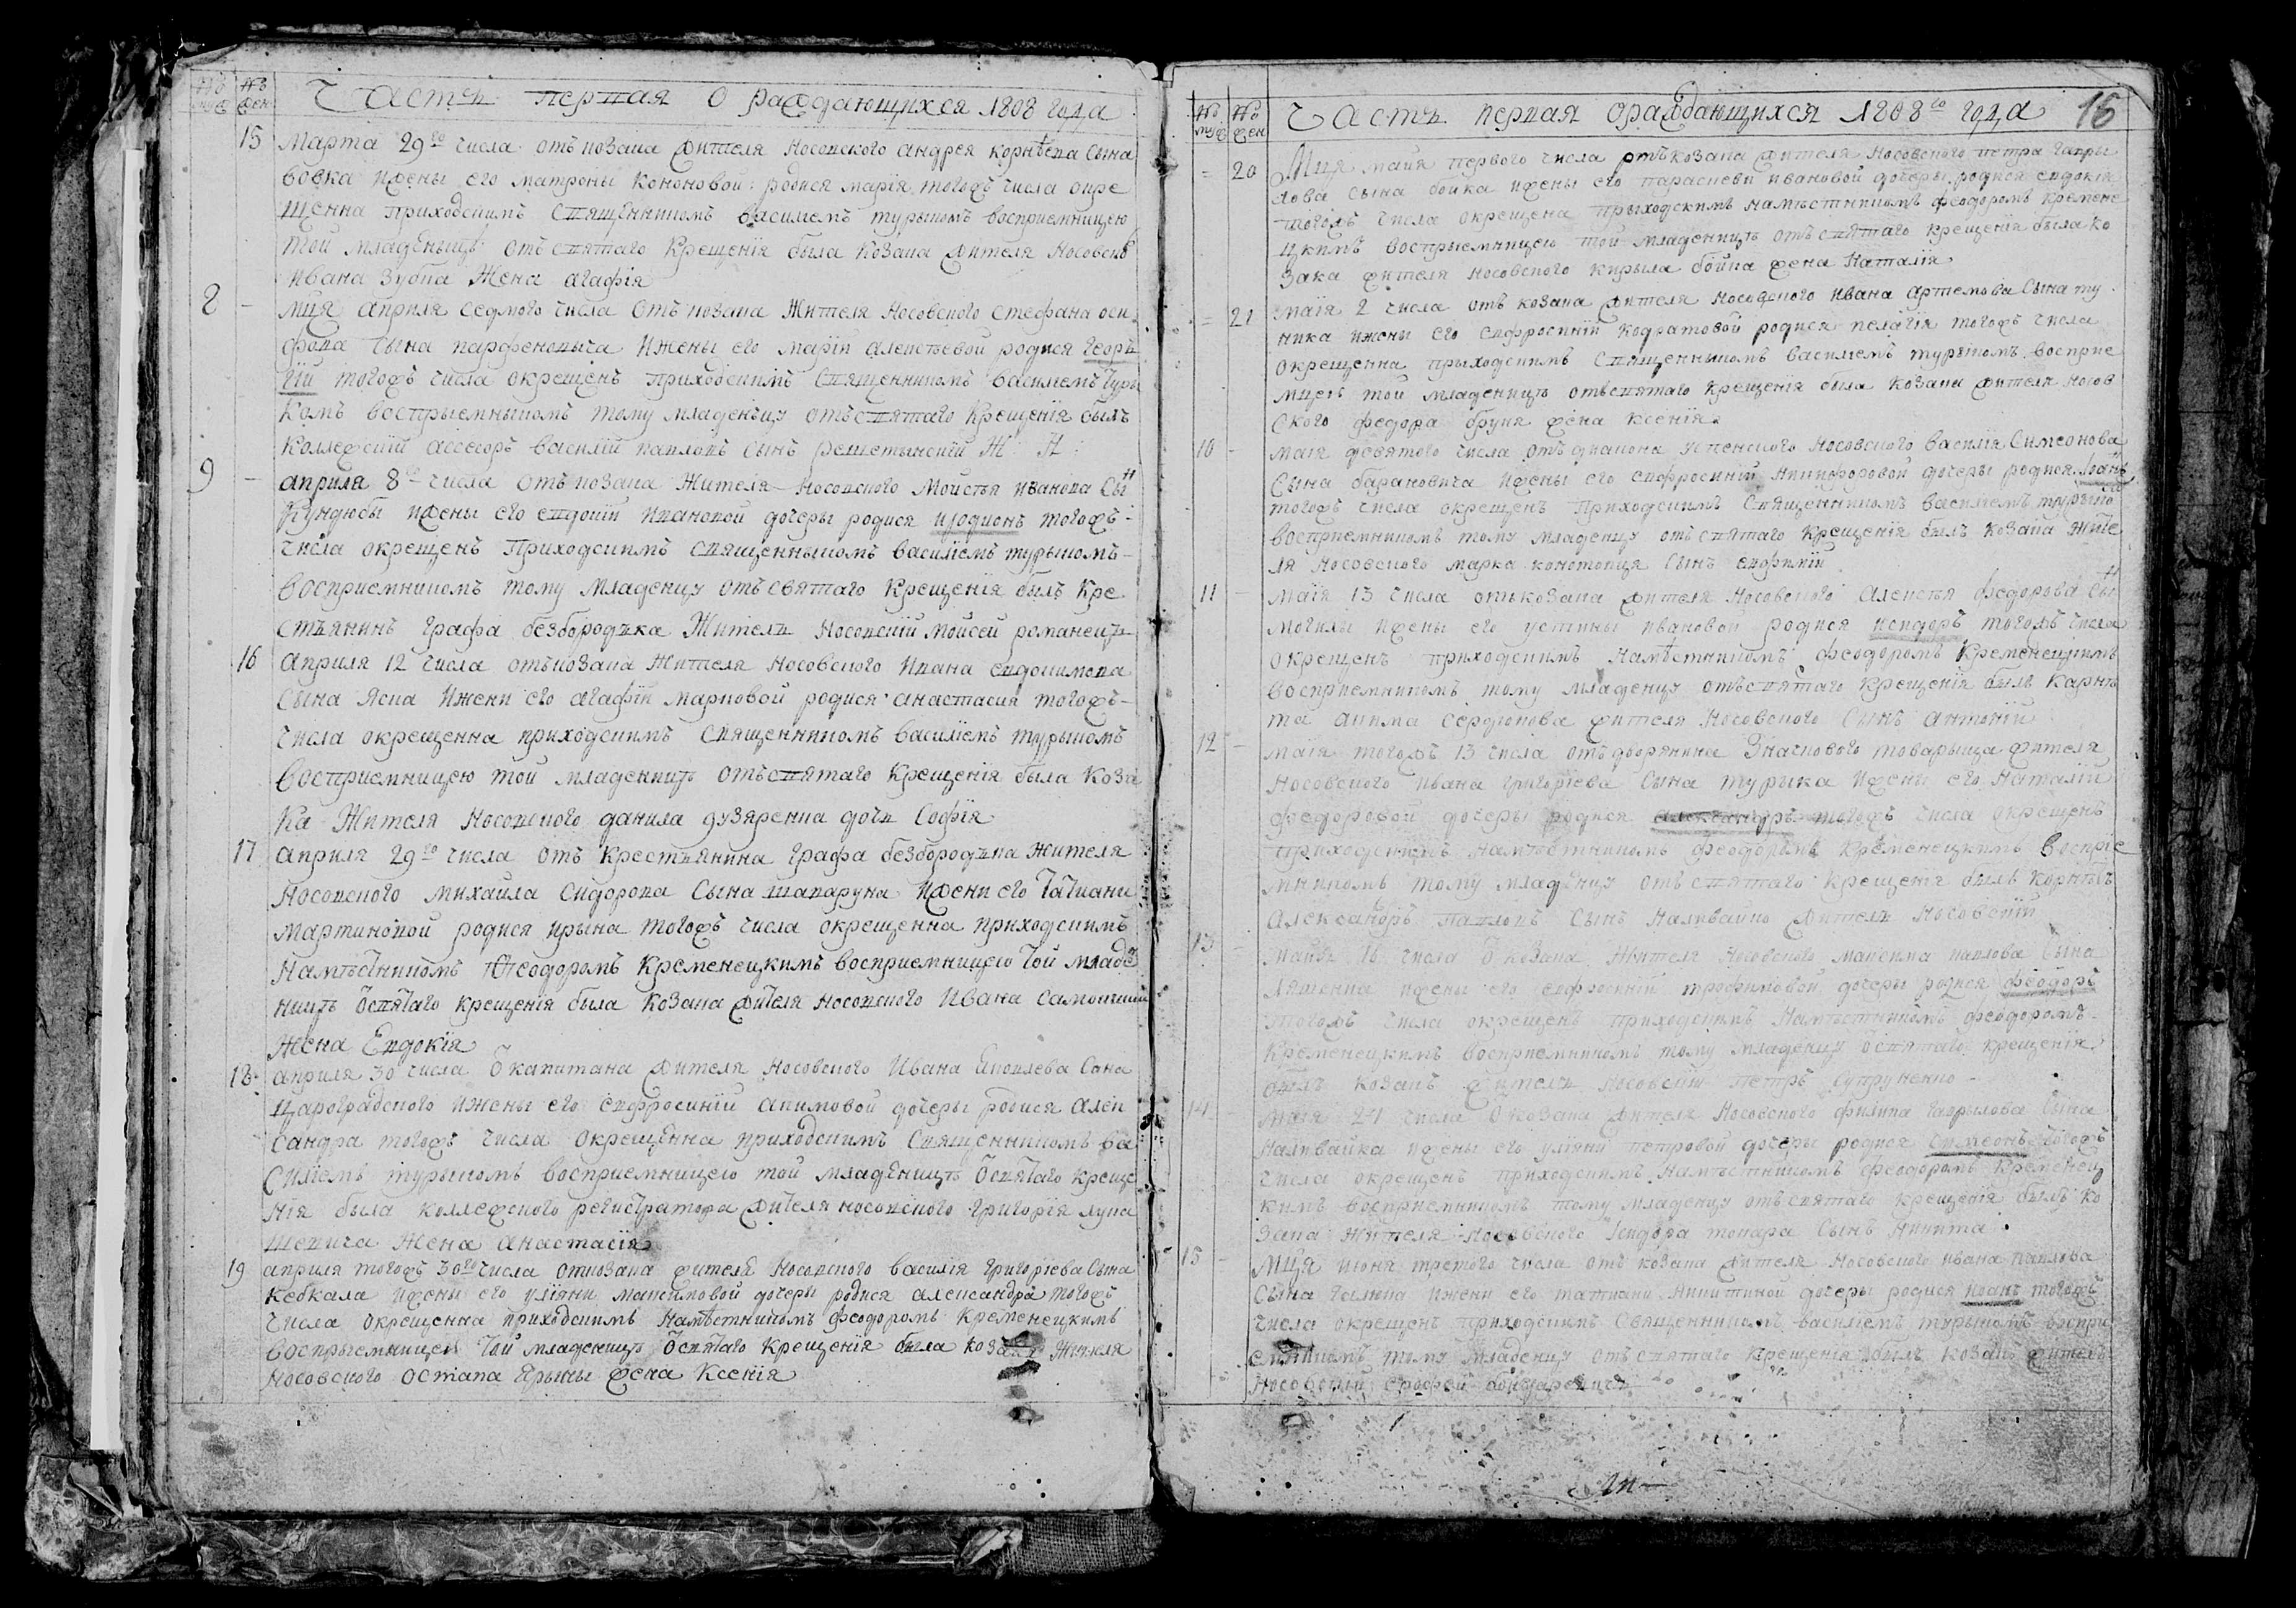 № муж № жен Часть первая о раждающихся 1808 года
15 Марта 29го числа отъ козака жителя Носовского андрея корнѣева Сына
вовка ижены его матроны кононовой родися марія тогожъ числа окре
щенна приходскимъ Священникомъ василіемъ турыкомъ восприемницею
той младеницѣ отъ святаго Крещенія была козака жителя Носовскаго
ивана зубка Жена агафія
8 - мця апрыля седмого числа отъ козака Жителя Носовского стефана оси
фова Сына парфеновича ижены его маріи алексѣевой родися георъ
гій тогожъ числа окрещенъ приходскимъ Священникомъ василіемъ туры
комъ воспрыемныкомъ тому младенъцу отъ святаго крещенія былъ
коллежскій ассесоръ василій павловъ сынъ решетынскій Ж: Н:
9 - априля 8го числа отъ козака Жителя Носовского Мойсѣя иванова Сын
кундюбы ижены его евдокіи ивановой дочеры родися иродионъ тогожъ
числа окрещенъ приходскимъ священныкомъ василіемъ турыкомъ
восприемникомъ тому младенцу отъ святаго крещенія былъ кре
стьянинъ графа безбородька Житель Носовскій мойсей романецъ
16 априля 12 числа отъ козака жителя Носовского ивана евдокимова
Сына ясна ижени его агафіи марковой родися анастасия тогожъ
числа окрещенна приходскимъ Священникомъ василіемъ турыкомъ
восприемницею той младенницѣ отъ святаго крещенія была коза
ка Жителя Носовского данила дузяренка дочь Софія
17 априля 29го числа отъ крестьянина графа безбородька жителя
Носовского михайла сидорова Сына шапаруна ижени его татиани
мартиновой родися ирына тогожъ числа окрещенна приходскимъ
Намѣстникомъ Феодоромъ Кременецкимъ восприемницею той младе
ницѣ ѿсвятаго крещенія была козака жителя носовского Ивана
Жена Евдокія
18 априля 30 числа ѿ капитана жителя Носовского Ивана Яковлева Сина
цароградского ижены его евфросиніи акимовой дочеры родися алек
сандра тогожъ числа окрещенна приходскимъ Священникомъ ва
силіемъ турыкомъ восприемницею той младеницѣ ѿсвятаго креще
нія была коллежского регистратора жителя носовского григорія лука
шевича Жена анастасія
19 априля тогожъ 30го числа откозака жителя Носовского василія григоріева Сына
кебкала ижены его уліяни максимовой дочеры родися александра тогожъ
числа окрещенна приходскимъ Намѣстникомъ феодоромъ Кременецкимъ
воспрыемницею той младеницѣ ѿсвятаго крещенія была козака жителя
Носовского остапа ярыны жена Ксенія
№ муж № жен Часть первая ораждающихся 1808го года 16
= 20 Мця майя первого числа отъ козака жителя Носовского петра гавры
лова сына бойка ижены его параскеви ивановой дочеры родися евдокія
тогожъ числа окрещена прыходскимъ намѣстникомъ феодоромъ кремене
цкимъ воспрыемницею той младеницѣ отъ святаго крещенія была ко
зака жителя носовского кирыла бойка жена Наталія
= 21 маія 2 числа отъ козака жителя носовского ивана артемова Сына ту
ника ижены его евфросиніи кодратовой родися пелагія тогожъ числа
окрещенна прыходскимъ Священныкомъ василіемъ турыкомъ восприе
мцею той младеницѣ отъ святаго крещенія была козака жителя носов
ского федора бруяя жена ксенія
10 - маія девятого числа отъ диакона успенского носовского василія Симеонова
Сына барановича ижены его евфросиніи никифоровой дочеры родися Іоанъ
тогожъ числа окрещенъ приходскимъ Священникомъ василіемъ турыко
восприемникомъ тому младенцу отъ святаго крещенія былъ козака жите
ля носовского марка конотопця Сынъ евфимій
11 - маія 13 числа отъ козака жителя Носовского алексѣя федорова Сын
могилы ижены его устины ивановой родися исидоръ тогожъ числа
окрещенъ приходскимъ Намѣстникомъ феодоромъ кременецкимъ
восприемникомъ тому младенцу отъ святаго крещенія былъ карне
та акима сердюкова жителя Носовского Сынъ антоній
12 - маія тогожъ 13 числа отъ дворянина Значкового товарыща жителя
Носовского ивана григоріева Сына турыка ижены его Наталіи
федоровой дочеры родися александръ тогожъ числа окрещенъ
приходскимъ Намѣстникомъ феодоромъ Кременецкимъ восприе
мникомъ тому младенцу отъ святаго крещенія былъ корнетъ
Александръ павловъ Сынъ Наливайко житель Носовскій
13 - маія 16 числа ѿ козака Жителя Носовского максима павлова Сына
ляшенка ижены его евфросиніи трофимовой дочеры родися феодоръ
тогожъ числа окрещенъ приходскимъ Намѣстникомъ феодоромъ
Кременецкимъ восприемникомъ тому младенцу ѿсвятаго крещенія
былъ козакъ житель носовскій петръ супруненко
14 маія 24 числа ѿ козака жителя Носовского филипа гаврылова Сына
Наливайка ижены его уліяни петровой дочеры родися симеонъ тогожъ
числа окрещенъ приходскимъ Намѣстникомъ феодоромъ Кременец
кимъ восприемникомъ тому младенцу отъ святаго крещенія былъ ко
зака жителя Носовского исидора токара Сынъ Никита
15 - Мця июня третого числа отъ козака жителя Носовского ивана павлова
Сына ижени его татиани Никитиной дочеры родися иоанъ тогожъ
числа окрещенъ приходскимъ Священникомъ василіемъ турыкомъ воспри
емникомъ тому младенцу отъ святаго крещенія былъ козакъ житель
Носовскій ерофей бондаревичъ